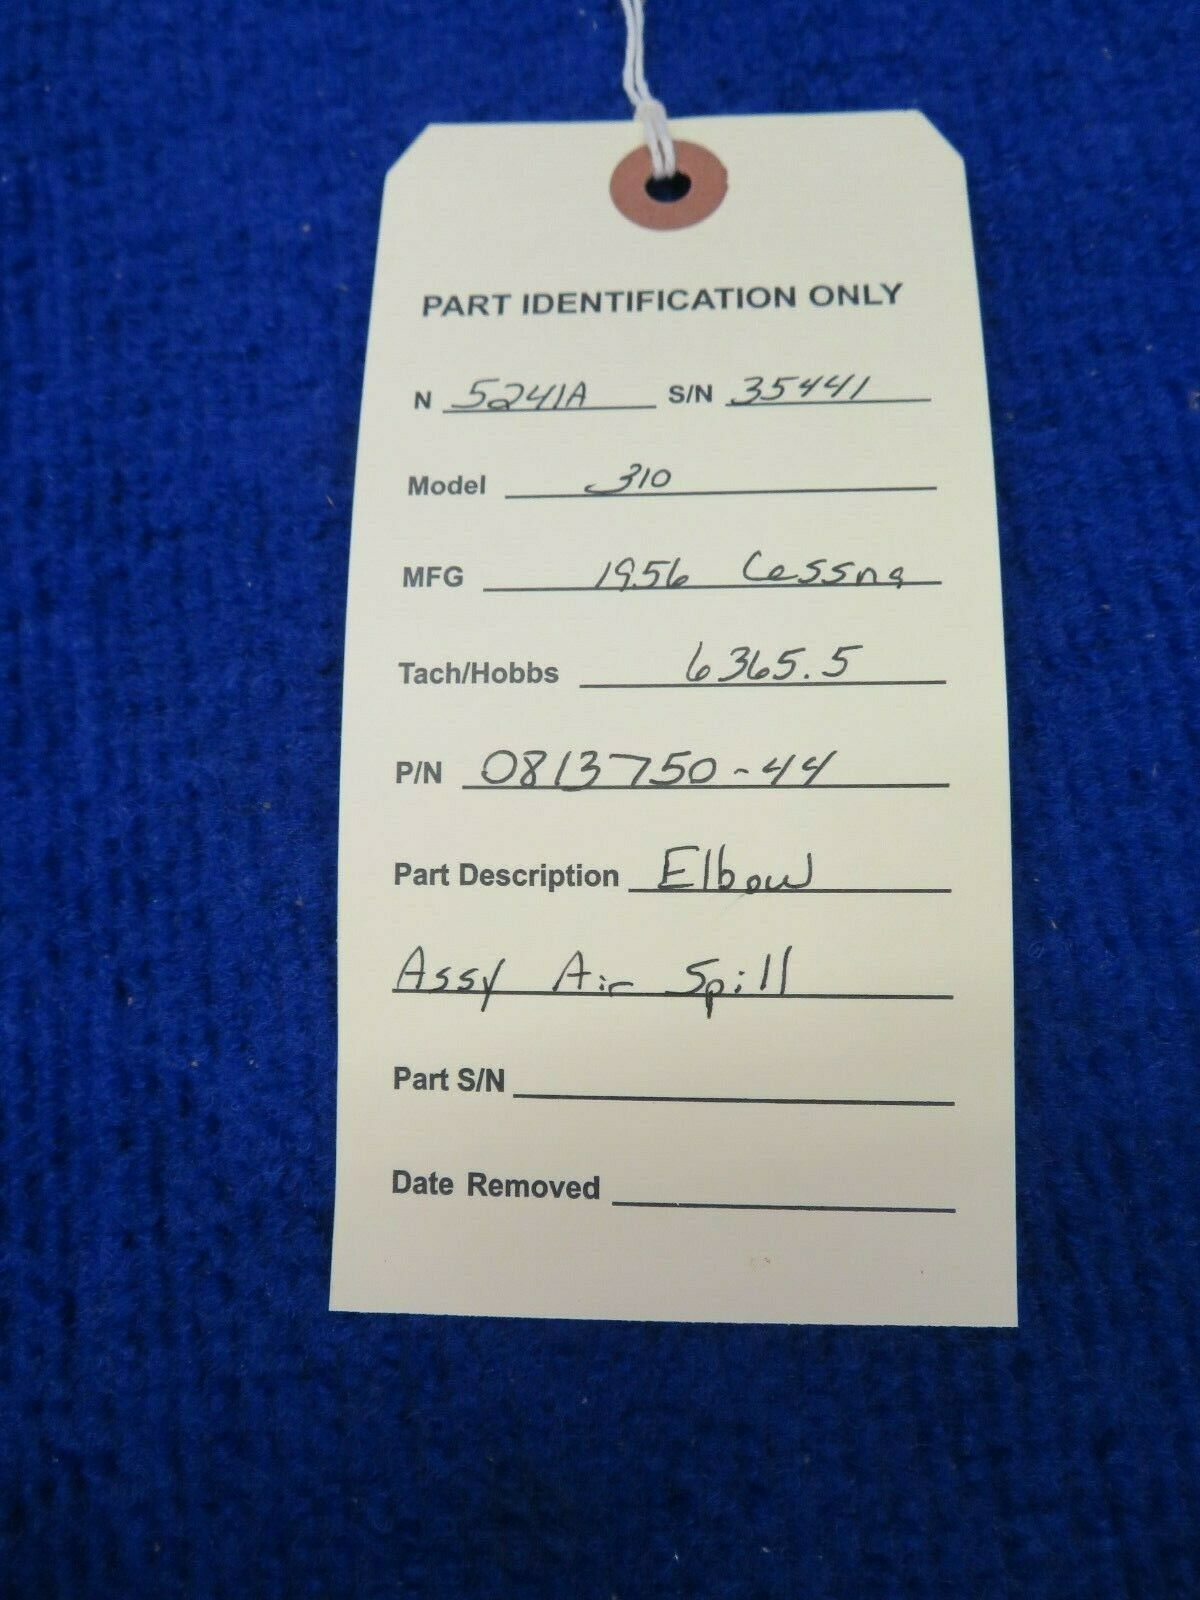 PART IDENTIFICATION ONLY
N 5241A S/N 35441
Model 310
MFG 1956 Cessna
Tach/Hobbs 6365.5
P/N 0813750-44
Part Description Elbow
Assy Air Spill
Part S/N
Date Removed